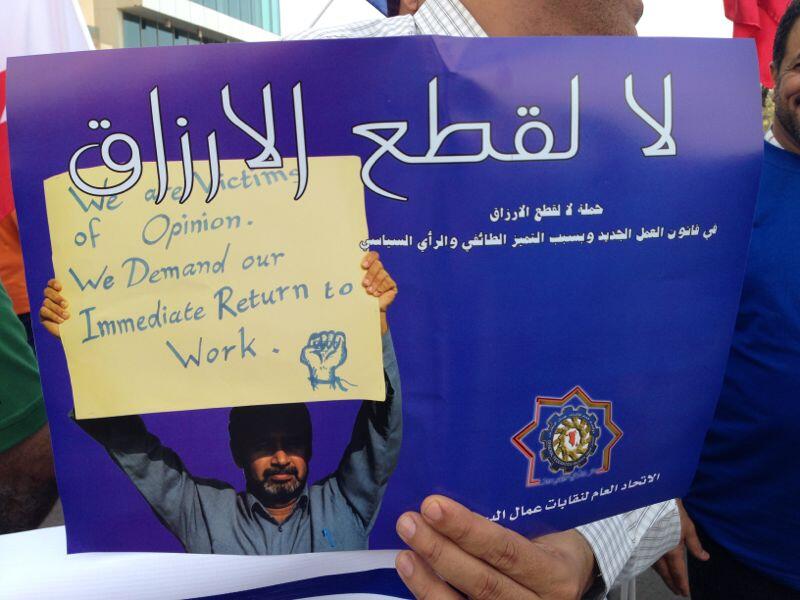 لا لقطع الارزاق
حملة لا لقطع الارزاق
في قانون العمل الجديد وبسبب التميز الطائفي والرأي السياسي
We are Victims
of Opinion.
We Demand our
Immediate Return to
Work.
الاتحاد العام لنقابات عمال